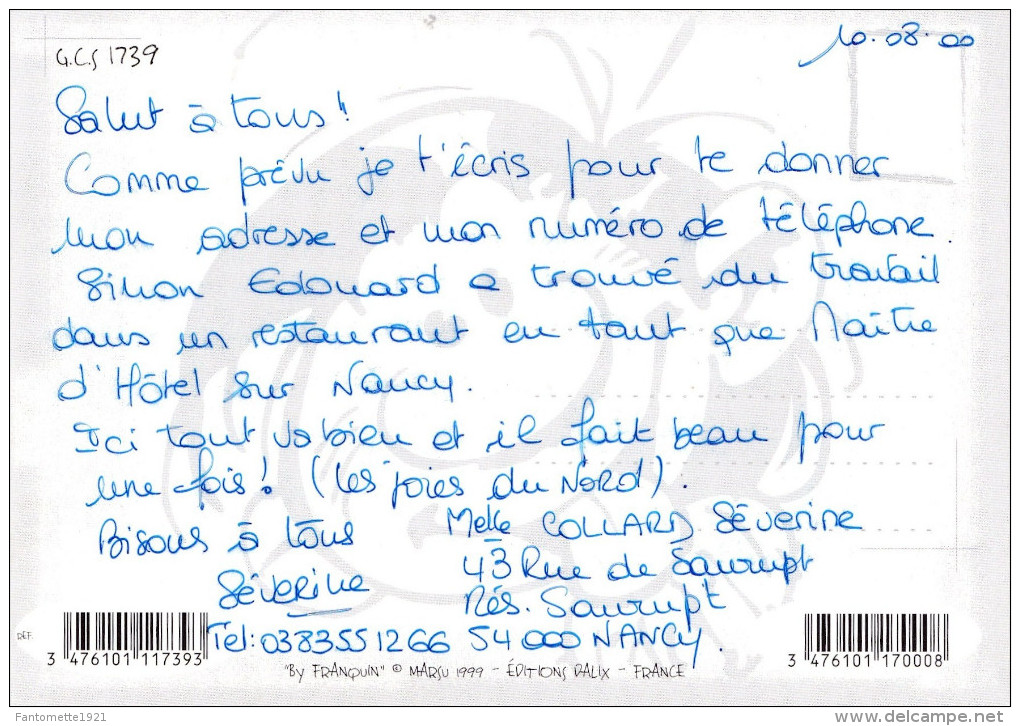 10.08.00
G.C.S 1739
Salut à tous !
Comme prévu je t'écris pour te donner
mon adresse et mon numéro de téléphone.
Simon Edouard a trouvé du travail
dans un restaurant en tant que Maître
d'Hôtel sur Nancy.
Ici tout va bien et il fait beau pour
une fois ! (les joies du Nord).
Bisous à tous
Séverine
Melle COLLARD Séverine
43 Rue de Saurupt
Rés. Saurupt
54000 NANCY.
Tel: 0383551266
RÉF.
3 476101 117393
3 476101 170008
"By FRANQUIN" © MARSU 1999 - ÉDITIONS DALIX - FRANCE
Fantomette1921
delcampe.net